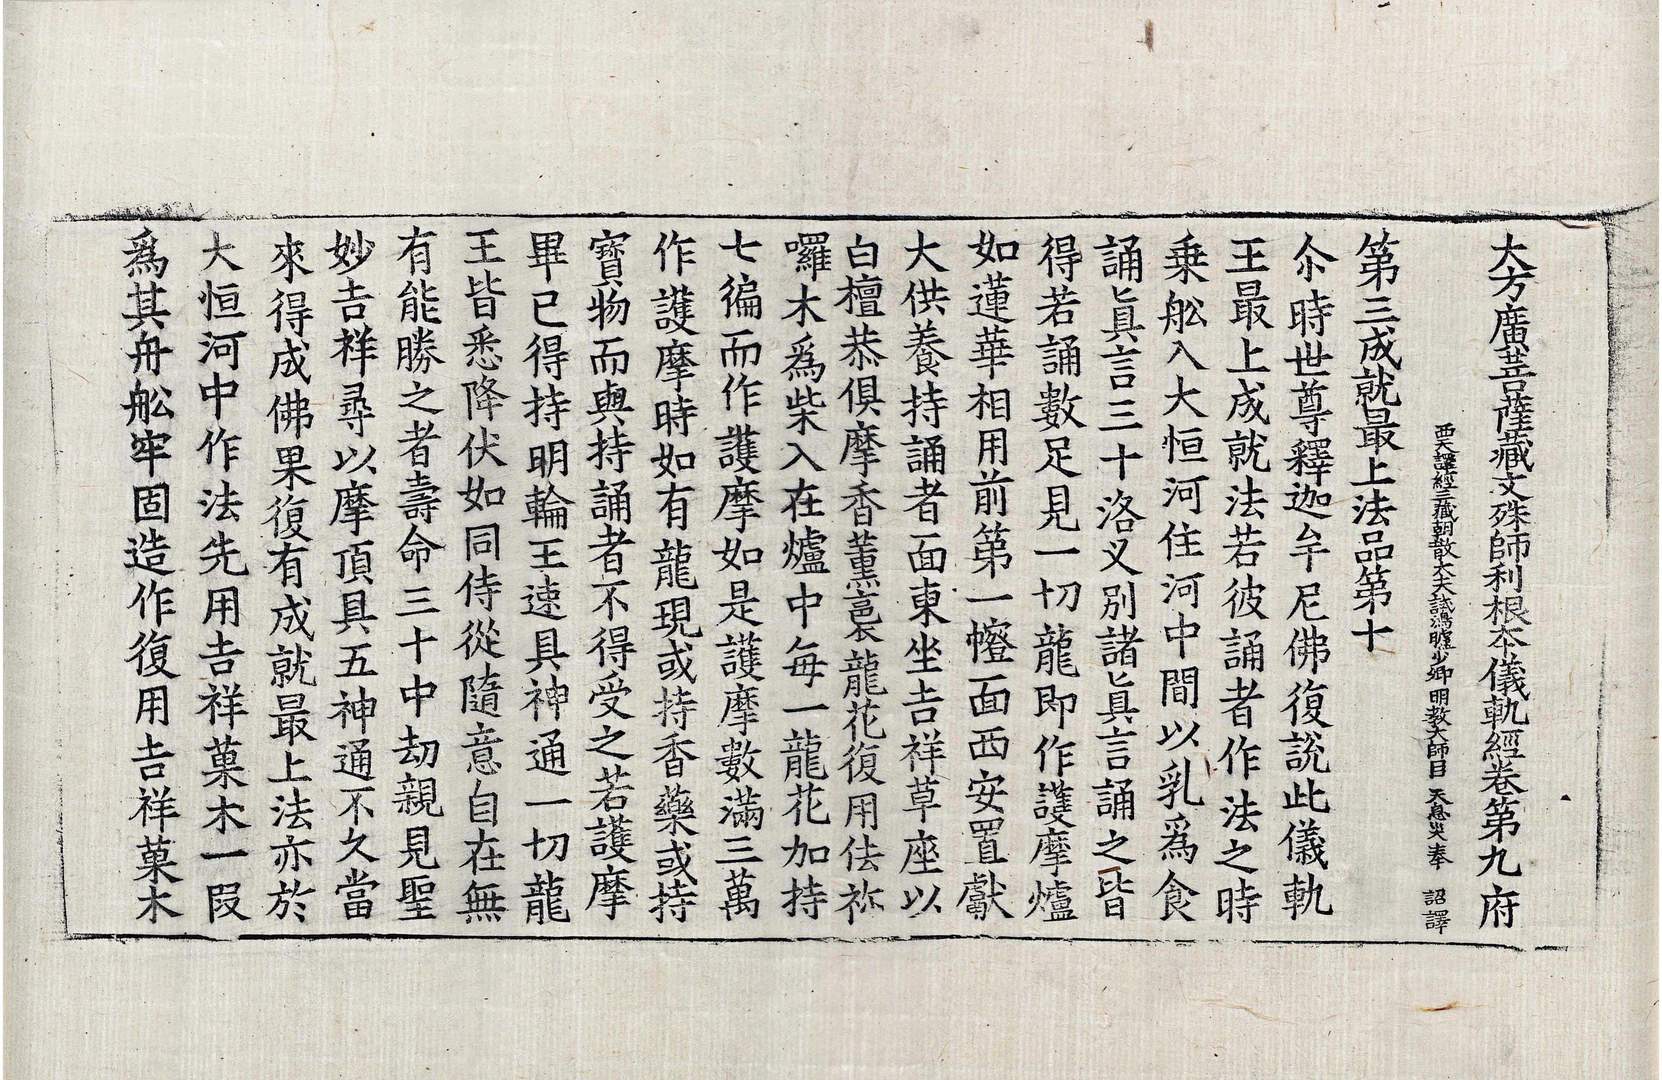 大方廣菩薩藏文殊師利根夲儀軌經卷第九 府
西天譯經三藏朝散大夫試鴻臚少卿明教大師臣 天息灾奉 詔譯
第三成就最上法品第十
尒時世尊釋迦牟尼佛復說此儀軌
王最上成就法若彼誦者作法之時
乗舩入大恒河住河中間以乳爲食
誦眞言三十洛叉別諸眞言誦之皆
得若誦數足見一切龍即作護摩爐
如蓮華相用前第一㡧面西安置獻
大供養持誦者面東坐吉祥草座以
白檀恭俱摩香薰裛龍花復用佉祢
囉木爲柴入在爐中每一龍花加持
七徧而作護摩如是護摩數滿三萬
作護摩時如有龍現或持香藥或持
寶物而與持誦者不得受之若護摩
畢已得持明輪王速具神通一切龍
王皆悉降伏如同侍從隨意自在無
有能勝之者壽命三十中劫親見聖
妙吉祥尋以摩頂具五神通不久當
來得成佛果復有成就最上法亦於
大恒河中作法先用吉祥菓木一段
爲其舟舩牢固造作復用吉祥菓木